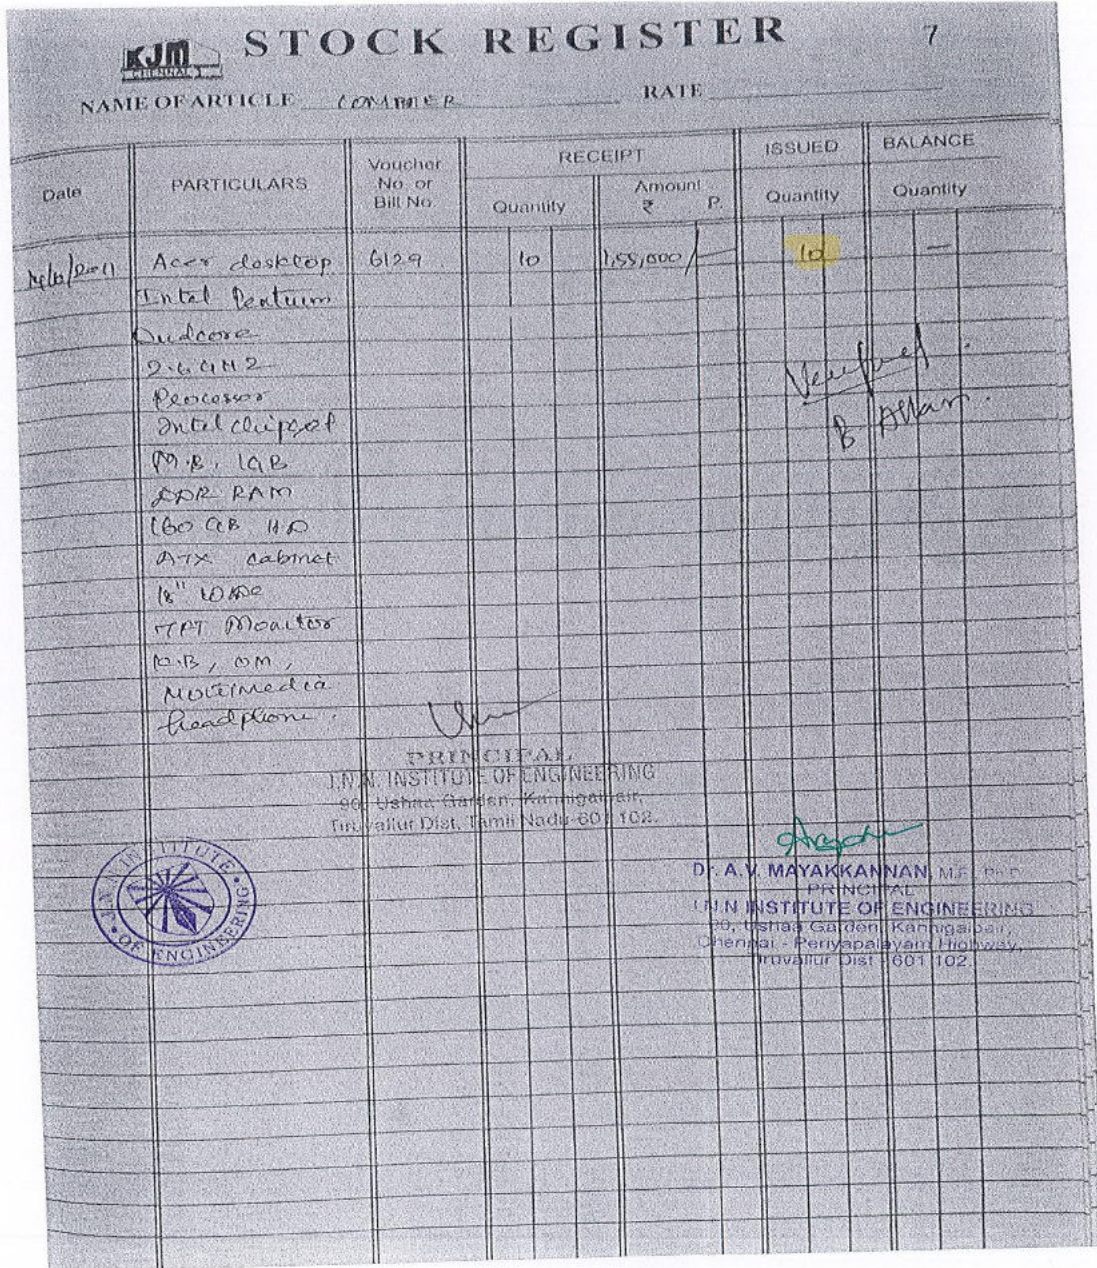 KJM
CHENNAI
STOCK REGISTER
7
NAME OF ARTICLE COMPUTER RATE
Date PARTICULARS Voucher No. or Bill No. RECEIPT Quantity Amount ₹ P. ISSUED Quantity BALANCE Quantity
Acer desktop 6129 10 1,55,000/- 10 —
Intel Pentium
Dualcore
2.6 GHZ
Processor
Intel chipset
M.B, 1GB
DDR RAM
160 GB HD
ATX cabinet
18" wide
TFT Monitor
K.B, OM,
Multimedia
headphone.
Verified
B
PRINCIPAL
J.N.N. INSTITUTE OF ENGINEERING
90, Ushaa Garden, Kannigaipair,
Tiruvallur Dist, Tamil Nadu-601 102.
J.N.N INSTITUTE
OF ENGINEERING
Dr. A.V. MAYAKKANNAN, M.E., Ph.D
PRINCIPAL
J.N.N INSTITUTE OF ENGINEERING
90, Ushaa Garden, Kannigaipair,
Chennai - Periyapalayam Highway,
Tiruvallur Dist - 601 102.